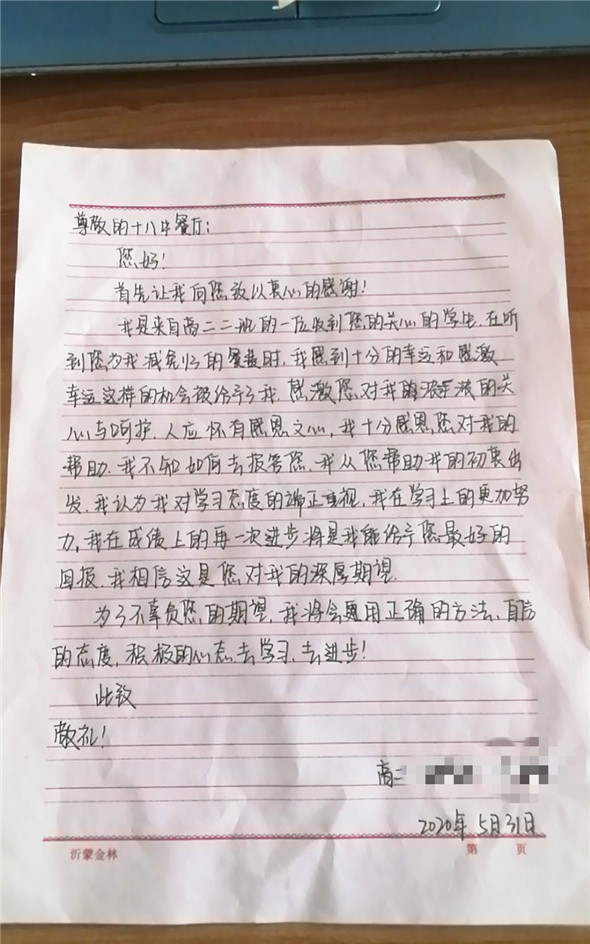 尊敬的十八中餐厅：
您好！
首先让我向您致以真心的感谢！
我是来自高二二班的一位收到您的关心的学生，在听
到您为我减免的餐费时，我感到十分的幸运和感激
幸运这样的机会被给予了我，感激您对我的深深的关
心与呵护，人应怀有感恩之心，我十分感恩您对我的
帮助，我不知如何去报答您，我从您帮助我的初衷出
发，我认为我对学习态度的端正重视，我在学习上的更加努
力，我在成绩上的再一次进步将是我能给予您最好的
回报，我相信这是您对我的深厚期望。
为了不辜负您的期望，我将会更用正确的方法、自信
的态度，积极的心态去学习，去进步！
此致
敬礼！
高二
2020年5月31日
沂蒙金林
第 页